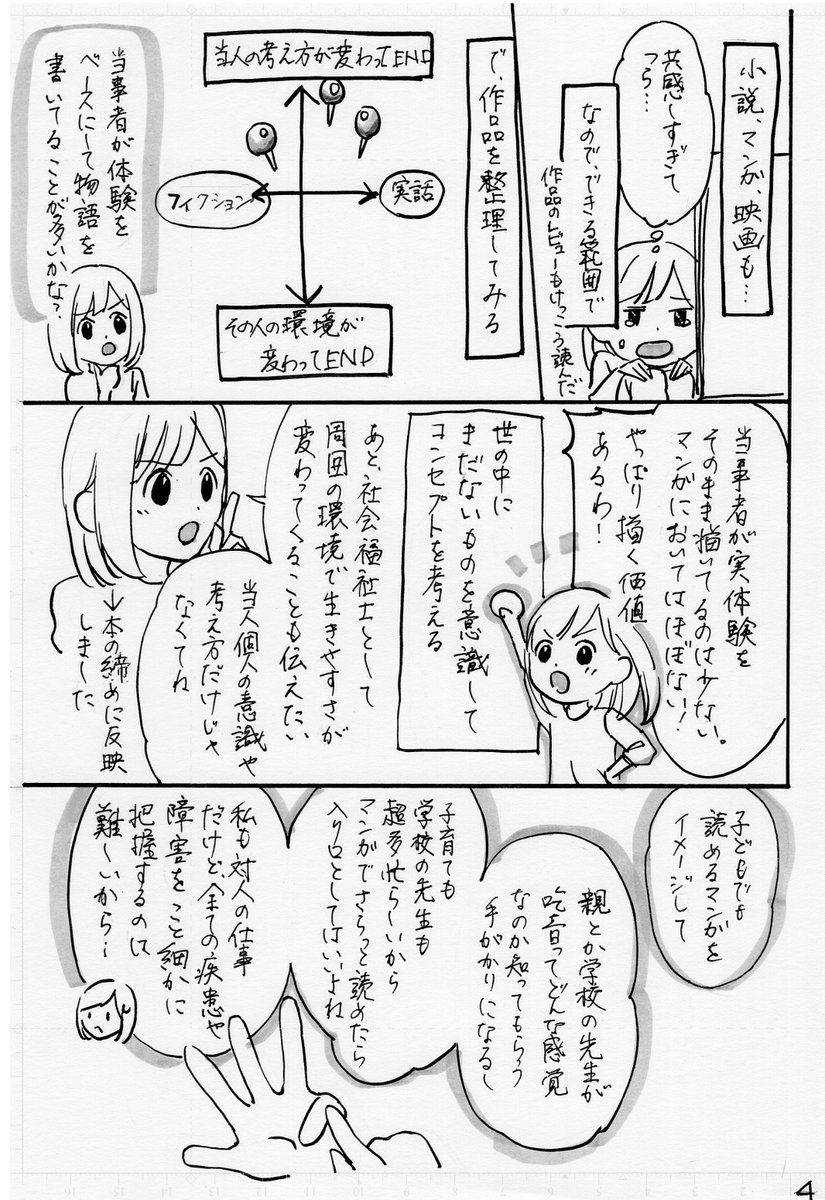 小説、マンガ、映画も…
共感しすぎて
つら…
なので、できる範囲で
作品のレビューもけっこう読んだ
で、作品を整理してみる
当人の考え方が変わってEND
フィクション
実話
その人の環境が
変わってEND
当事者が体験を
ベースにして物語を
書いてることが多いかな？
当事者が実体験を
そのまま描いてるのは少ない。
マンガにおいてはほぼない！
やっぱり描く価値
あるわ！
世の中に
まだないものを意識して
コンセプトを考える
あと、社会福祉士として
周囲の環境で生きやすさが
変わってくることも伝えたい
当人個人の意識や
考え方だけじゃ
なくてね
→本の締めに反映
しました
子どもでも
読めるマンガを
イメージして
親とか学校の先生が
吃音ってどんな感覚
なのか知ってもらう
手がかりになるし
子育ても
学校の先生も
超多忙らしいから
マンガでさらっと読めたら
入り口としてはいいよね
私も対人の仕事
だけど、全ての疾患や
障害をこと細かに
把握するのは
難しいから…
4